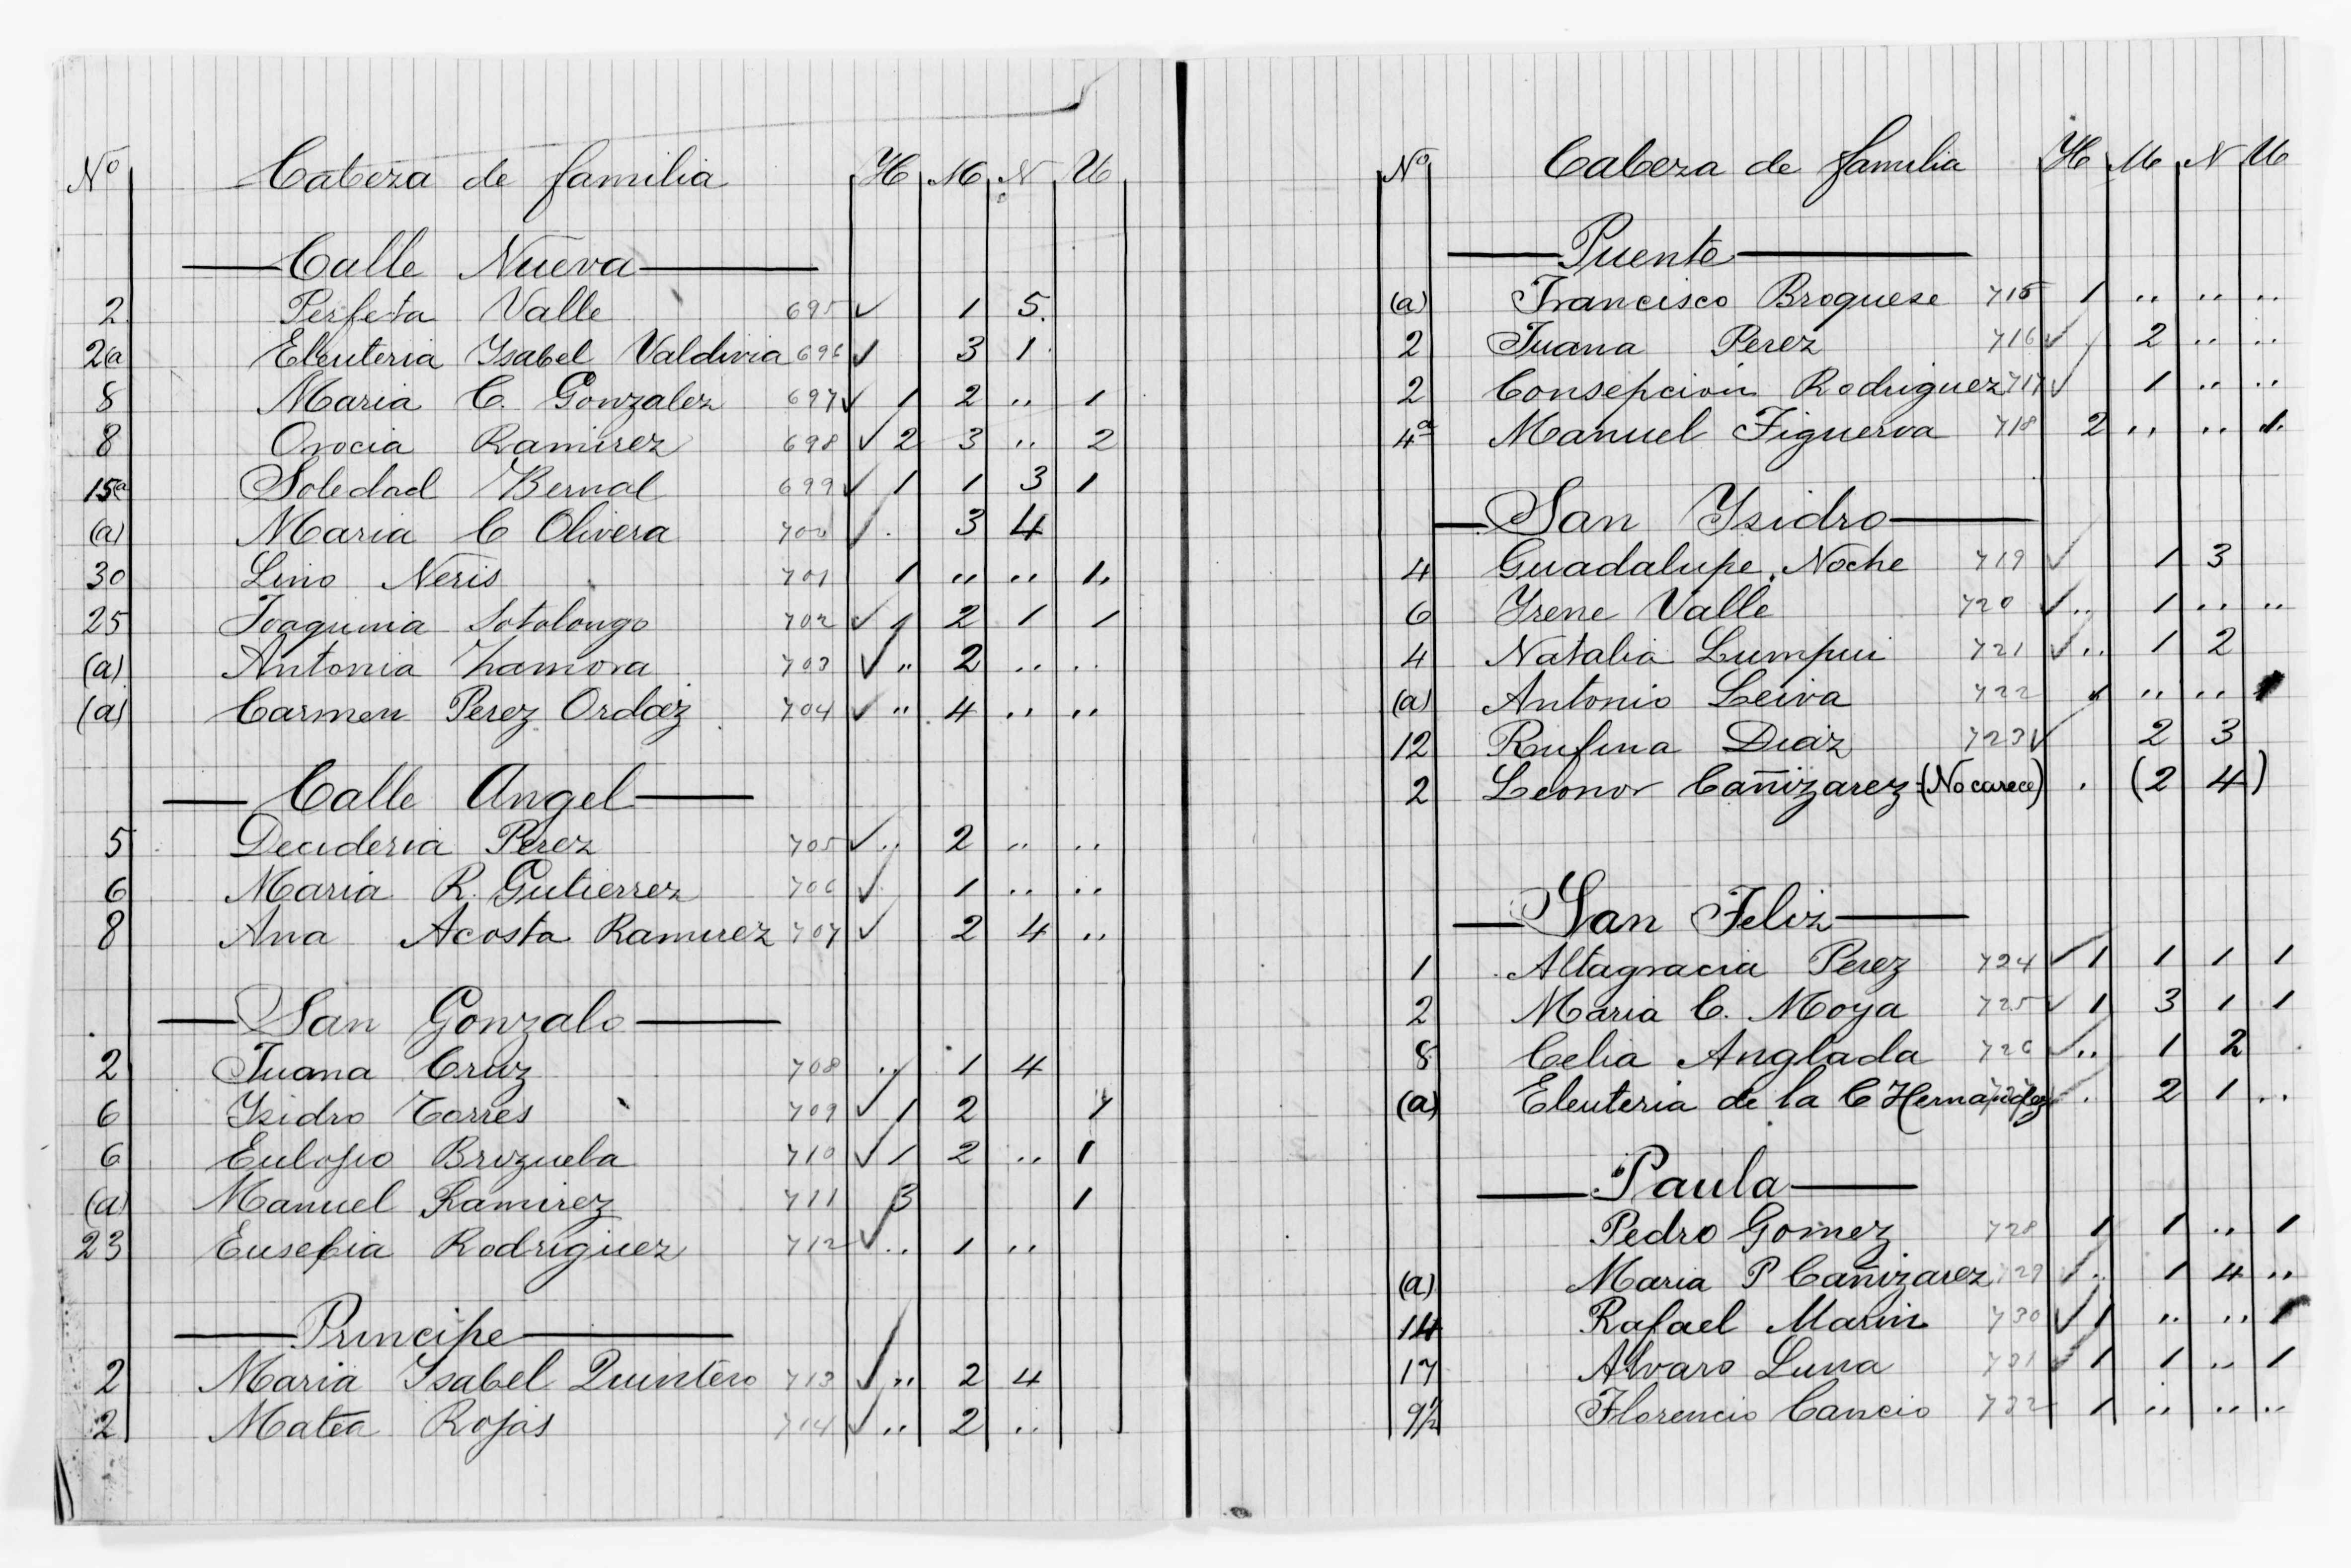 Nº Cabeza de familia H M N U
Calle Nueva
2 Perfeta Valle 695 ✓ 1 5.
2a Eleuteria Ysabel Valdivia 696 ✓ 3 1
8 Maria C. Gonzalez 697 ✓ 1 2 .. 1
8 Orocia Ramirez 698 ✓ 2 3 .. 2
15a Soledad Bernal 699 ✓ 1 1 3 1
(a) Maria C Olivera 700 ✓ . 3 4
30 Lino Neris 701 1 .. .. 1.
25 Joaquina Sotolongo 702 ✓ 1 2 1 1
(a) Antonia Zamora 703 ✓ .. 2 .. ..
(a) Carmen Perez Ordaz 704 ✓ .. 4 .. ..
Calle Angel
5 Decideria Perez 705 ✓ .. 2 .. ..
6 Maria R. Gutierrez 706 ✓ 1 .. ..
8 Ana Acosta Ramirez 707 ✓ 2 4 ..
San Gonzalo
2 Juana Cruz 708 ../ 1 4
6 Ysidro Torres 709 ✓ 1 2 1
6 Eulogio Brizuela 710 ✓ 1 2 .. 1
(a) Manuel Ramirez 711 3 1
23 Eusebia Rodriguez 712 ✓ .. 1 ..
Principe
2 Maria Ysabel Quintero 713 ✓ .. 2 4
2 Matea Rojas 714 ✓ .. 2 ..
Nº Cabeza de familia H M N U
Puente
(a) Francisco Broquese 715 1 .. .. ..
2 Juana Perez 716 ✓ 2 .. ..
2 Consepcion Rodriguez 717 ✓ 1 .. ..
4a Manuel Figueroa 718 2 .. .. 1.
San Ysidro
4 Guadalupe Noche 719 ✓ 1 3
6 Yrene Valle 720 ✓ .. 1 .. ..
4 Natalia Lumpui 721 ✓ .. 1 2
(a) Antonio Leiva 722 1 .. .. 1
12 Rufina Diaz 723 ✓ 2 3
2 Leonor Cañizarez = (No carece) . (2 4)
San Feliz
1 Altagracia Perez 724 ✓ 1 1 1 1
2 Maria C. Moya 725 ✓ 1 3 1 1
8 Celia Anglada 726 ✓ .. 1 2
(a) Eleuteria de la C Hernandez 727 . 2 1 ..
Paula
Pedro Gomez 728 1 1 .. 1
(a) Maria P Cañizarez 729 ✓ .. 1 4 ..
14 Rafael Marin 730 ✓ 1 .. .. 1
17 Alvaro Luna 731 ✓ 1 1 .. 1
9½ Florencio Cancio 732 1 .. .. ..